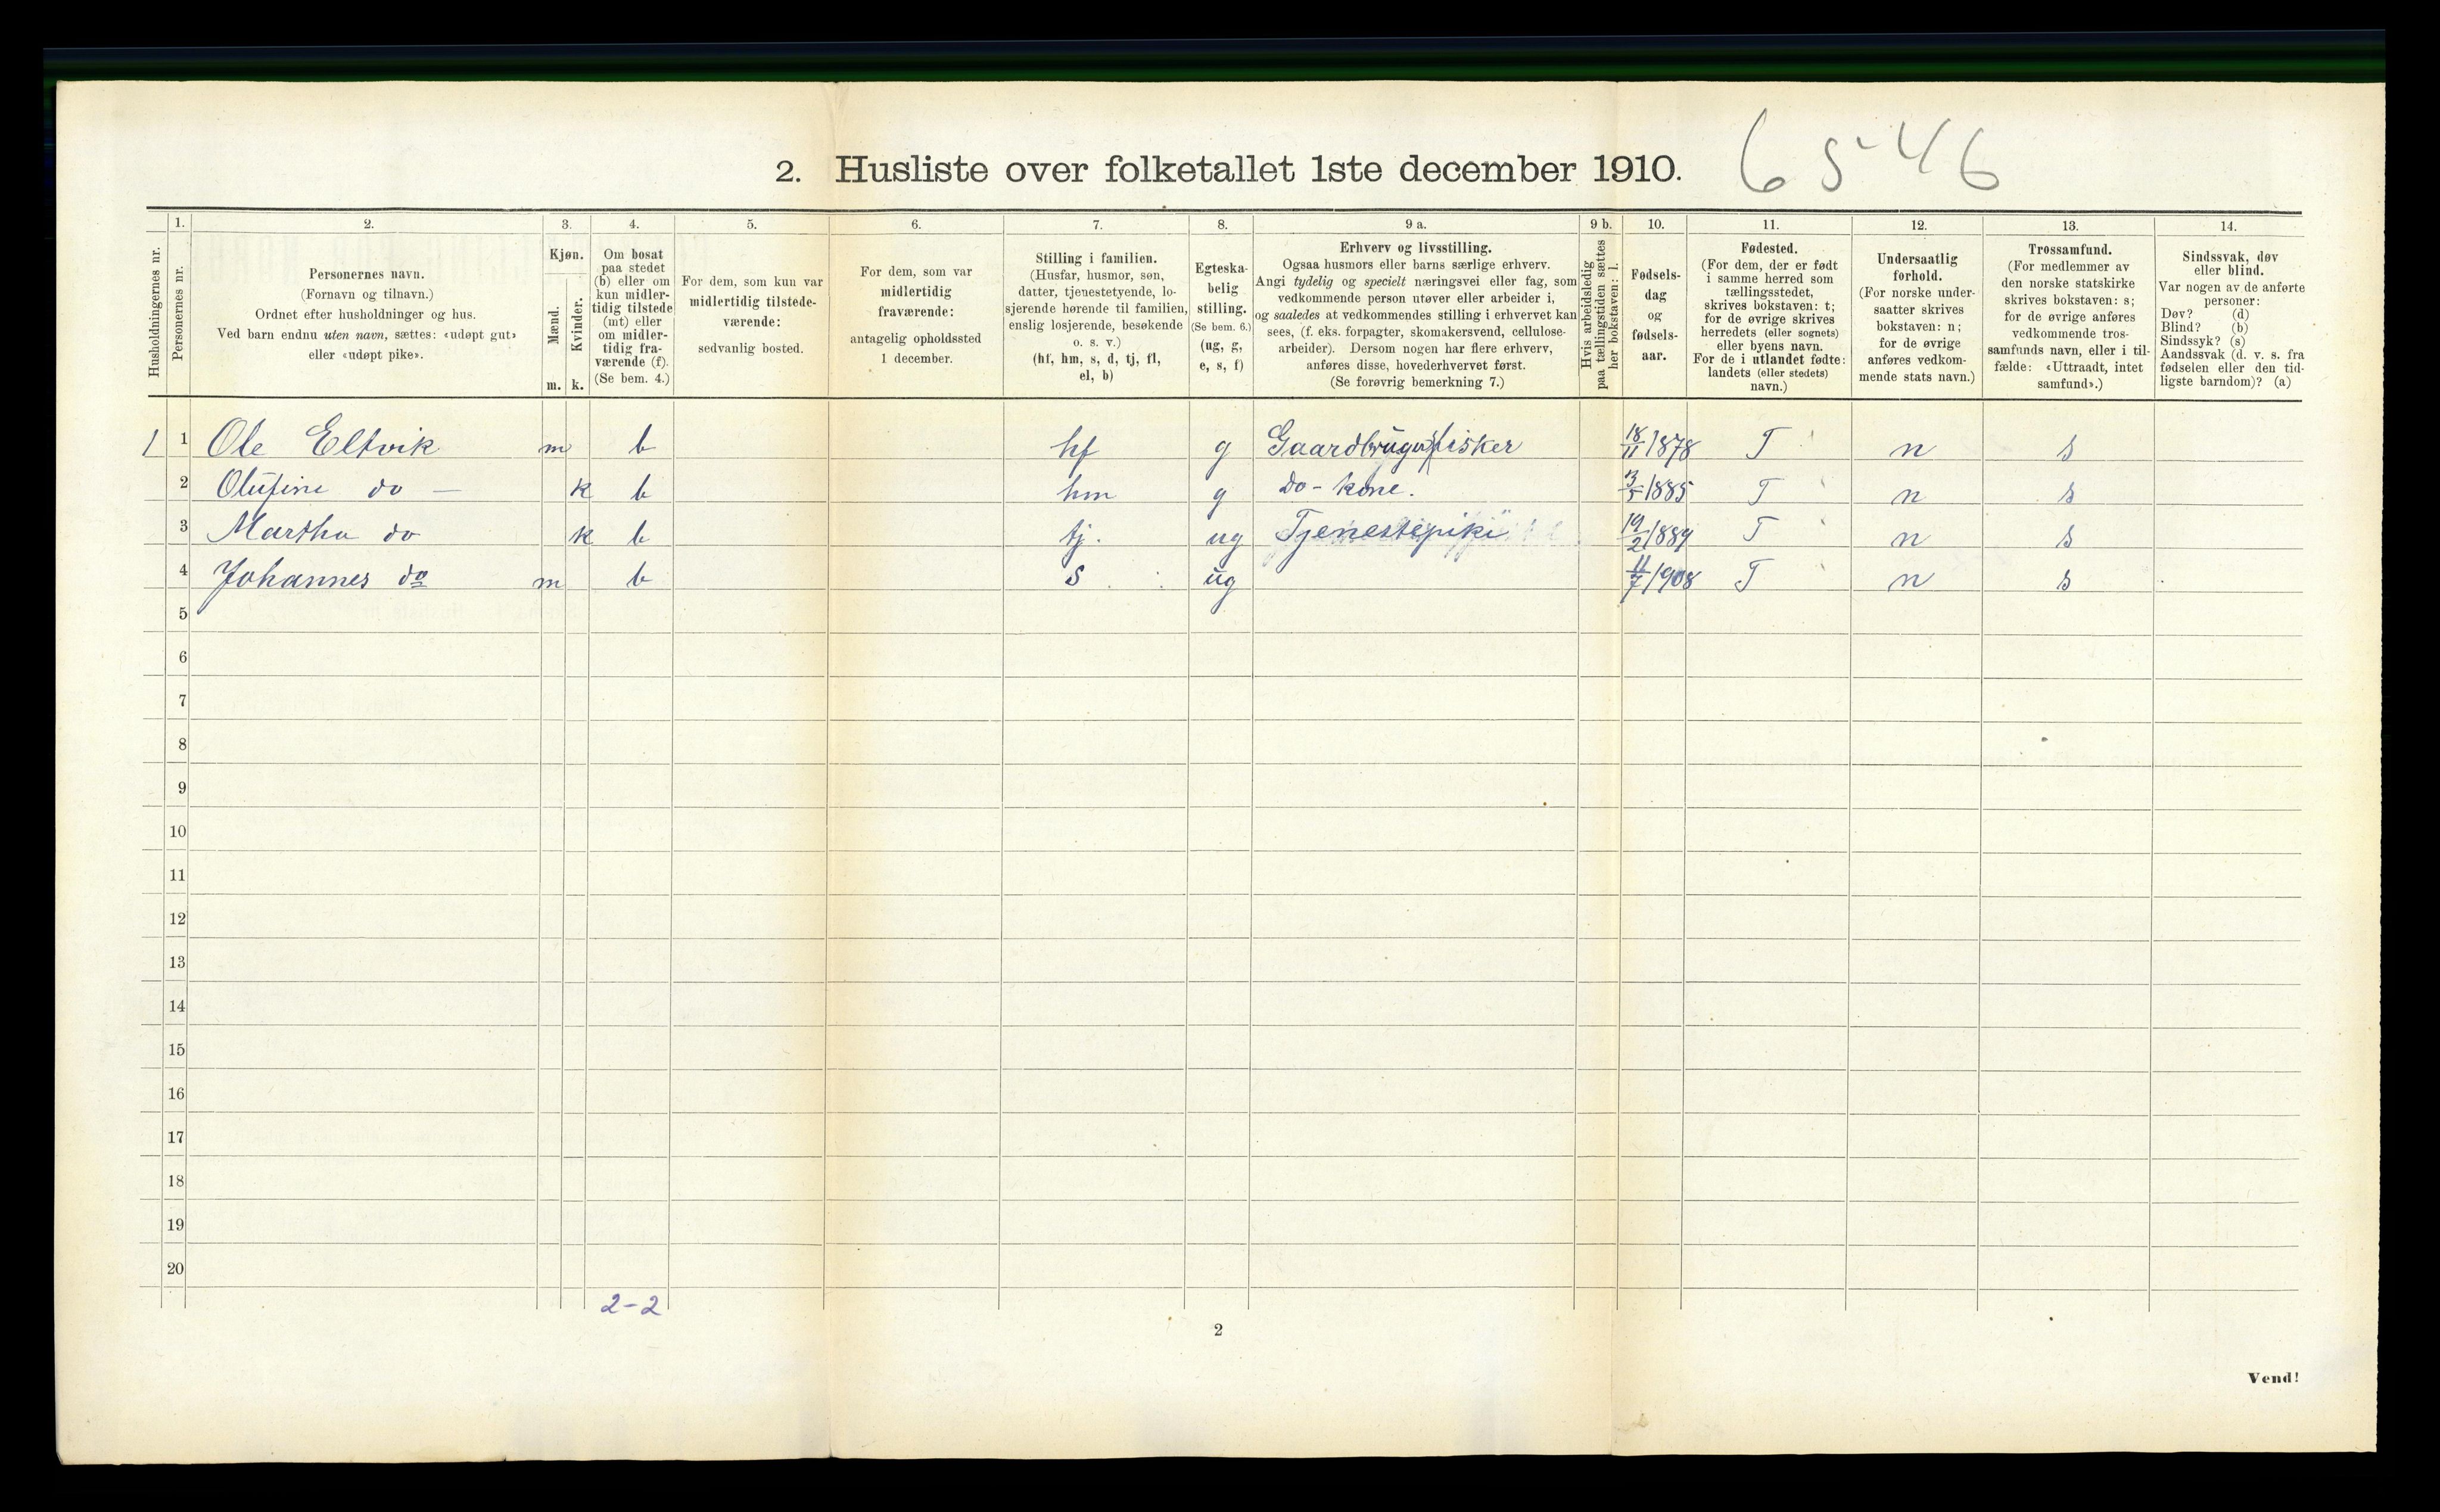 6546
2. Husliste over folketallet 1ste december 1910.
Husholdningernes nr.
1. Personernes nr.
2. Personernes navn.
(Fornavn og tilnavn.)
Ordnet efter husholdninger og hus.
Ved barn endnu uten navn, sættes: «udøpt gut»
eller «udøpt pike».
3. Kjøn.
Mænd. m.
Kvinder. k.
4. Om bosat
paa stedet
(b) eller om
kun midler-
tidig tilstede
(mt) eller
om midler-
tidig fra-
værende (f).
(Se bem. 4.)
5. For dem, som kun var
midlertidig tilstede-
værende:
sedvanlig bosted.
6. For dem, som var
midlertidig
fraværende:
antagelig opholdssted
1 december.
7. Stilling i familien.
(Husfar, husmor, søn,
datter, tjenestetyende, lo-
sjerende hørende til familien,
enslig losjerende, besøkende
o. s. v.)
(hf, hm, s, d, tj, fl,
el, b)
8. Egteska-
belig
stilling.
(Se bem. 6.)
(ug, g,
e, s, f)
9 a. Erhverv og livsstilling.
Ogsaa husmors eller barns særlige erhverv.
Angi tydelig og specielt næringsvei eller fag, som
vedkommende person utøver eller arbeider i,
og saaledes at vedkommendes stilling i erhvervet kan
sees, (f. eks. forpagter, skomakersvend, cellulose-
arbeider). Dersom nogen har flere erhverv,
anføres disse, hovederhvervet først.
(Se forøvrig bemerkning 7.)
9 b. Hvis arbeidsledig
paa tællingstiden sættes
her bokstaven: l.
10. Fødsels-
dag
og
fødsels-
aar.
11. Fødested.
(For dem, der er født
i samme herred som
tællingsstedet,
skrives bokstaven: t;
for de øvrige skrives
herredets (eller sognets)
eller byens navn.
For de i utlandet fødte:
landets (eller stedets)
navn.)
12. Undersaatlig
forhold.
(For norske under-
saatter skrives
bokstaven: n;
for de øvrige
anføres vedkom-
mende stats navn.)
13. Trossamfund.
(For medlemmer av
den norske statskirke
skrives bokstaven: s;
for de øvrige anføres
vedkommende tros-
samfunds navn, eller i til-
fælde: «Uttraadt, intet
samfund».)
14. Sindssvak, døv
eller blind.
Var nogen av de anførte
personer:
Døv? (d)
Blind? (b)
Sindssyk? (s)
Aandssvak (d. v. s. fra
fødselen eller den tid-
ligste barndom)? (a)
1 1 Ole Eltvik m b hf g Gaardbruger fisker 18/11 1878 T n s
2 Olufine do — k b hm g do - kone. 3/5 1885 T n s
3 Martha do k b tj. ug Tjenestepike 19/2 1889 T n s
4 Johannes do m b s ug 11/7 1908 T n s
5
6
7
8
9
10
11
12
13
14
15
16
17
18
19
20
2-2
2
Vend!